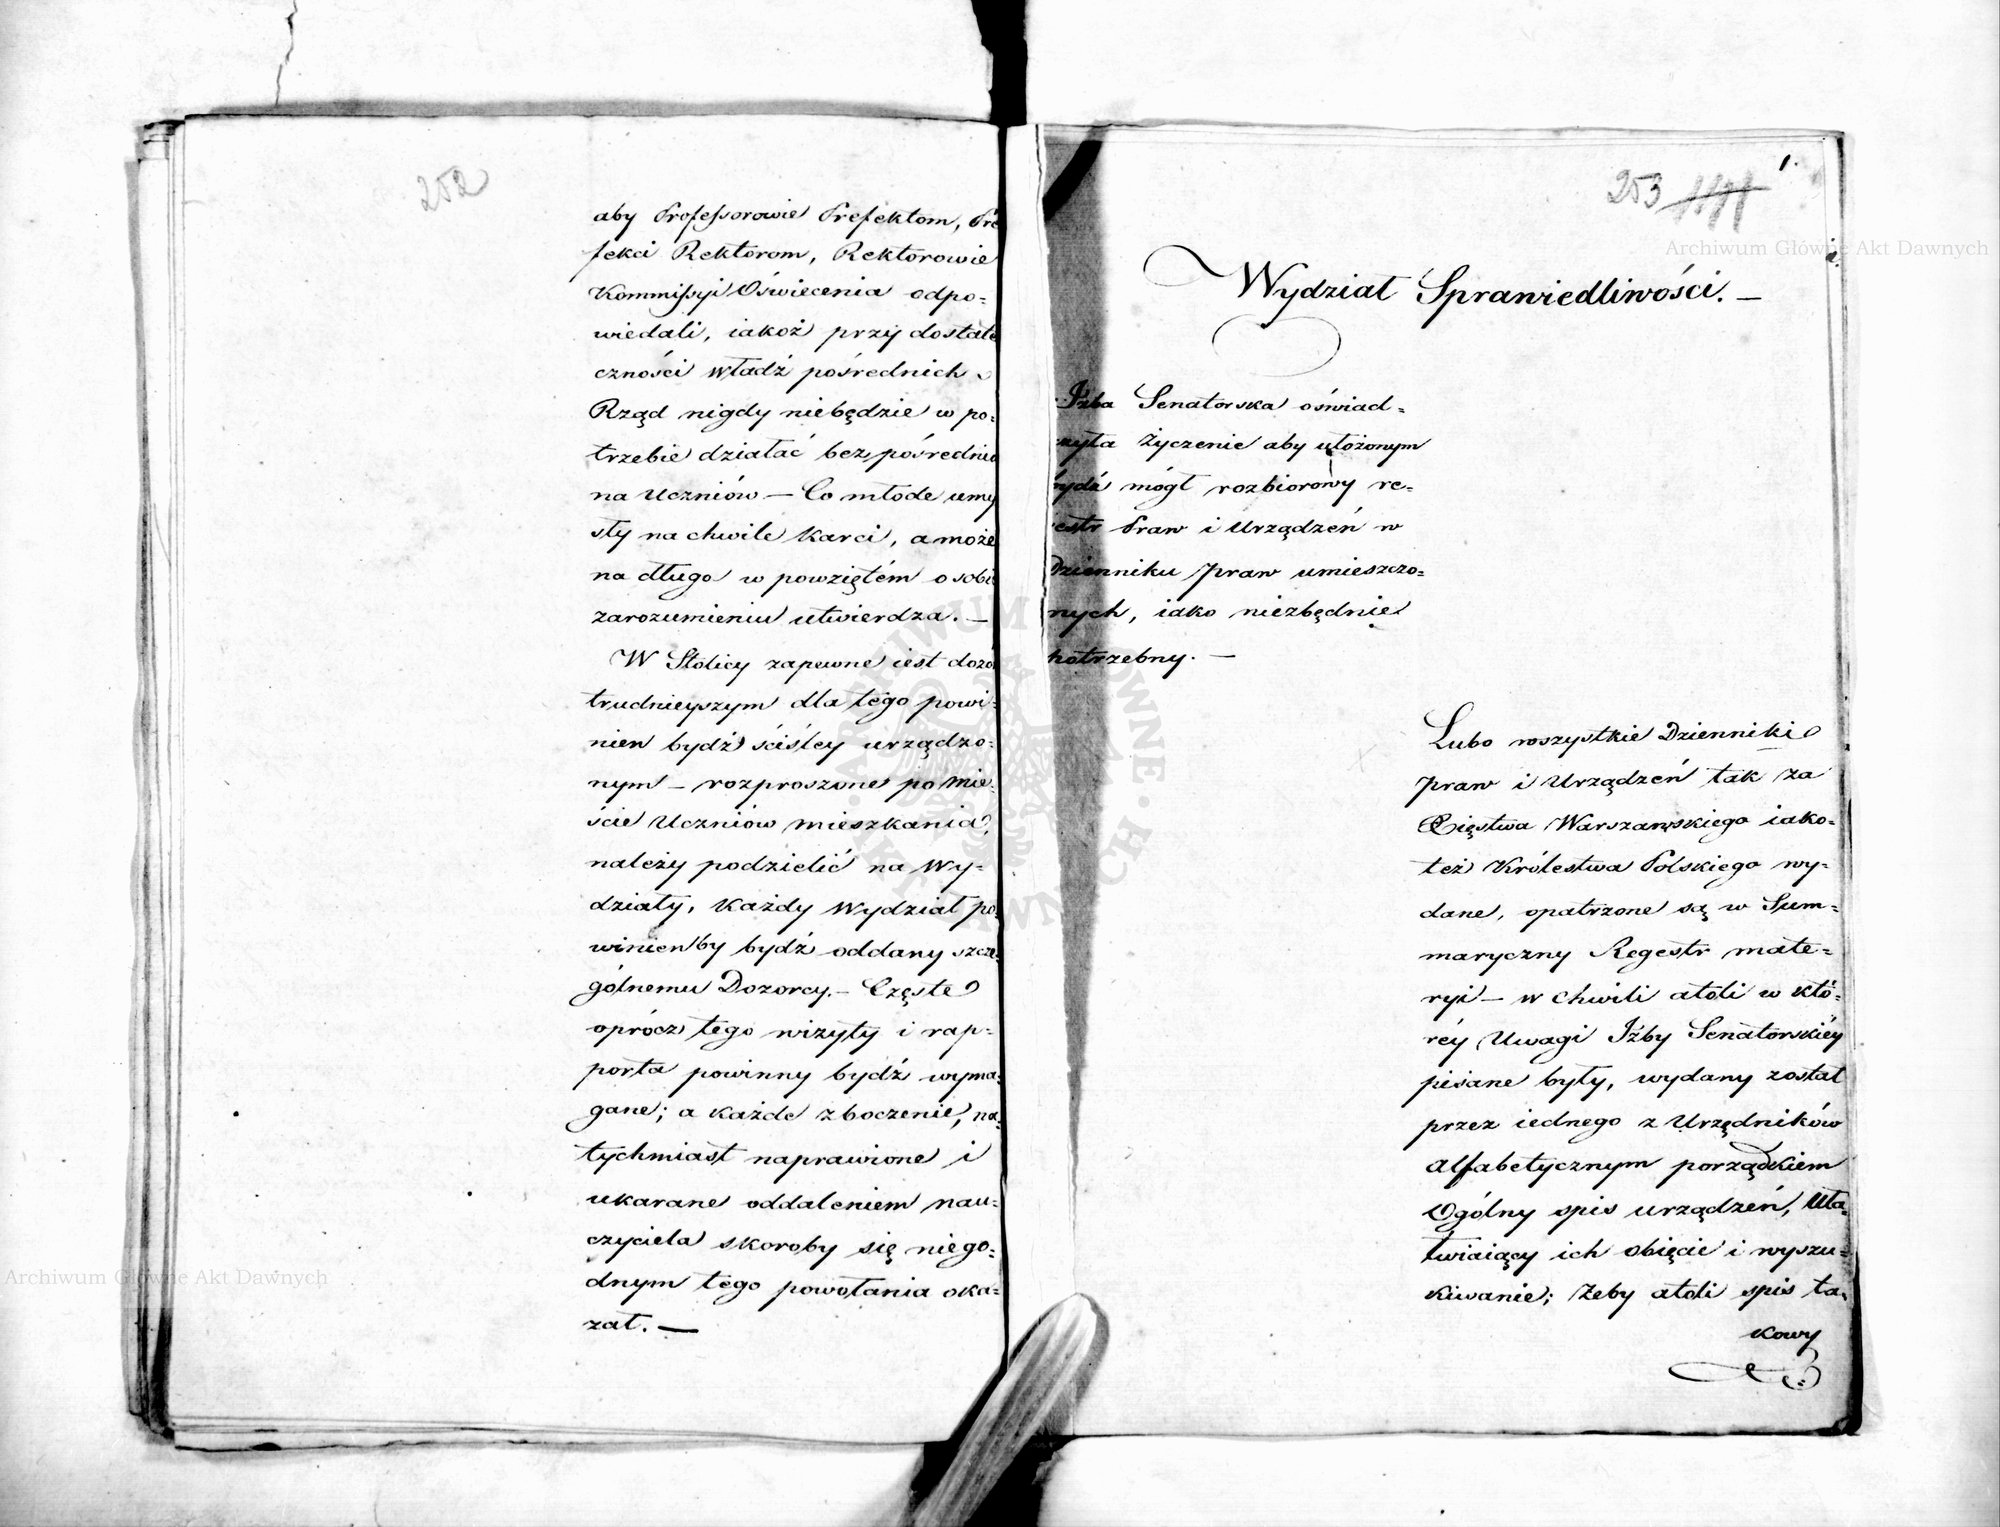 252
aby Professorowie Prefektom, Pre
fekci Rektorom, Rektorowie
Kommissyi Oświecenia odpo=
wiedali, iakoż przy dostate
czności władź pośrednich
Rząd nigdy niebędzie w po=
trzebie działać bezpośrednio
na Uczniów — Co młode umy
sły na chwile karci, a może
na długo w powziętém o sobie
zarozumieniu utwierdza. —
W Stolicy zapewne iest dozó
trudnieyszym dla tego powi=
nien bydź ściśley urządzo=
nym — rozproszone po Mie=
ście Uczniów mieszkania,
należy podzielić na Wy=
działy, każdy Wydział po=
winienby bydź oddany szcze=
gólnemu Dozorcy. — Częste
oprócz tego wizyty i rap=
porta powinny bydź wyma=
gane; a każde zboczenie, na=
tychmiast naprawione i
ukarane oddaleniem nau=
czyciela skoroby się niego=
dnym tego powołania oka=
zał. —
1.
253
Wydział Sprawiedliwości. —
Izba Senatorska oświad=
czyła życzenie aby ułożonym
bydź mógł rozbiorowy re=
iestr Praw i Urządzeń w
Dzienniku Praw umieszczo=
nych, iako niezbędnie
potrzebny. —
Lubo wszystkie Dzienniki
Praw i Urządzeń tak za
Xięstwa Warszawskiego iako=
też Królestwa Polskiego wy=
dane, opatrzone są w Sum=
maryczny Regestr mate=
ryi — w chwili atoli w któ=
réy Uwagi Izby Senatorskiéy
pisane były, wydany został
przez iednego z Urzędników
alfabetycznym porządkiem
Ogólny spis urządzeń, uła=
twiaiący ich obięcie i wyszu=
kiwanie; żeby atoli spis ta=
kowy
Archiwum Główne Akt Dawnych
Archiwum Główne Akt Dawnych
ARCHIWUM GŁÓWNE AKT DAWNYCH